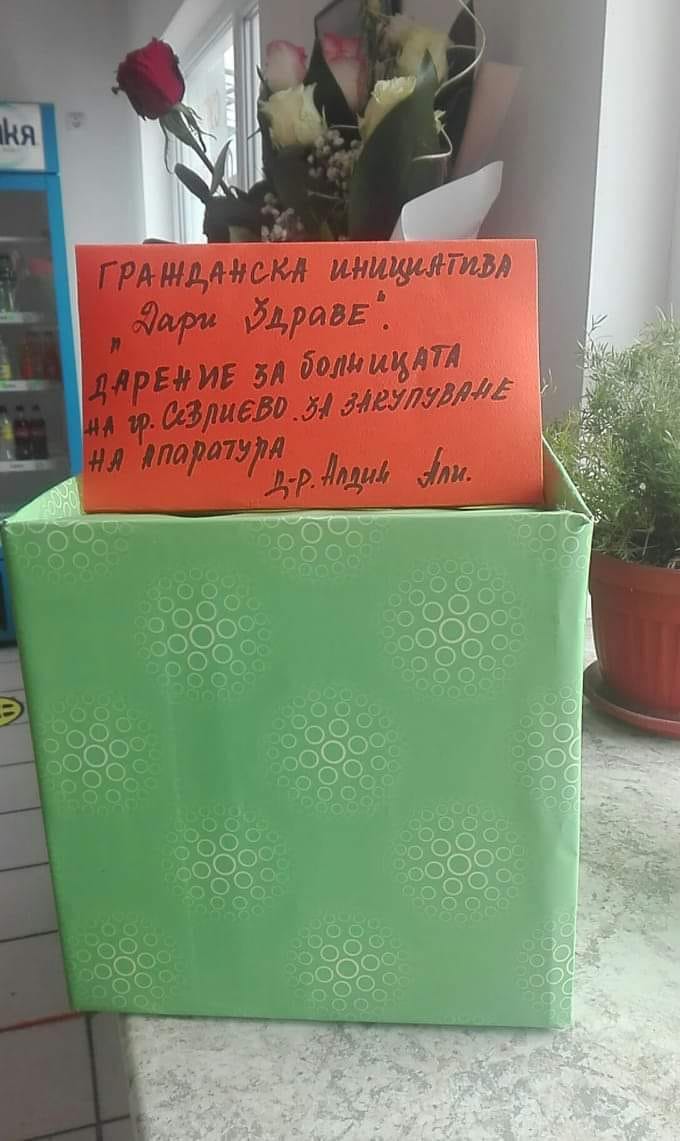 ГРАЖДАНСКА ИНИЦИАТИВА
„Дари Здраве".
ДАРЕНИЕ ЗА БОЛНИЦАТА
НА гр. СЕВЛИЕВО. ЗА ЗАКУПУВАНЕ
НА АПАРАТУРА
Д-р. Алдин Али.